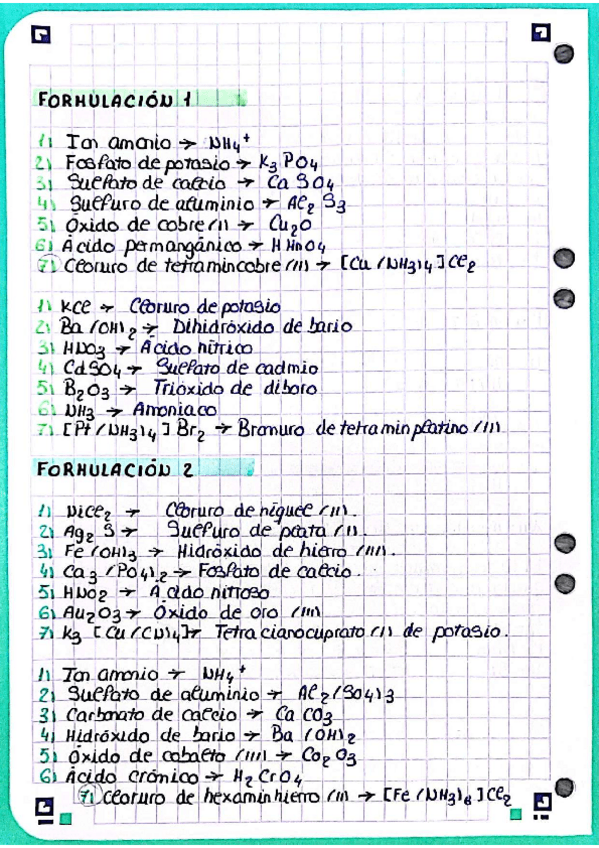 FORMULACIÓN 1
1) Ion amonio → NH4+
2) Fosfato de potasio → K3PO4
3) Sulfato de calcio → CaSO4
4) Sulfuro de aluminio → Al2S3
5) Óxido de cobre(I) → Cu2O
6) Ácido permangánico → HMnO4
7) Cloruro de tetramincobre(II) → [Cu(NH3)4]Cl2
1) KCl → Cloruro de potasio
2) Ba(OH)2 → Dihidróxido de bario
3) HNO3 → Ácido nítrico
4) CdSO4 → Sulfato de cadmio
5) B2O3 → Trióxido de diboro
6) NH3 → Amoniaco
7) [Pt(NH3)4]Br2 → Bromuro de tetraminplatino(II)
FORMULACIÓN 2
1) NiCl2 → Cloruro de níquel(II).
2) Ag2S → Sulfuro de plata(I).
3) Fe(OH)3 → Hidróxido de hierro(III).
4) Ca3(PO4)2 → Fosfato de calcio.
5) HNO2 → Ácido nitroso
6) Au2O3 → Óxido de oro(III)
7) K3[Cu(CN)4] → Tetracianocuprato(I) de potasio.
1) Ion amonio → NH4+
2) Sulfato de aluminio → Al2(SO4)3
3) Carbonato de calcio → CaCO3
4) Hidróxido de bario → Ba(OH)2
5) Óxido de cobalto(III) → Co2O3
6) Ácido crómico → H2CrO4
7) Cloruro de hexaminhierro(II) → [Fe(NH3)6]Cl2